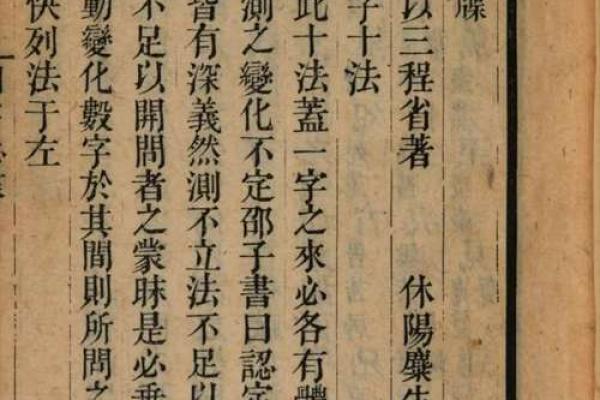 牒
以三程省著 休陽麋生
字十法
此十法蓋一字之來必各有體
測之變化不定邵子書曰認字
皆有深義然測不立法不足以
不足以開問者之蒙昧是必
動變化數字於其間則所問之
快列法于左